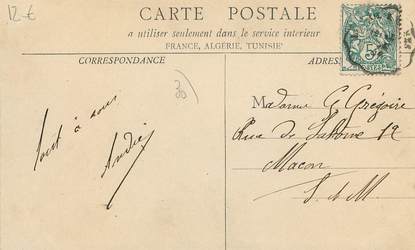 12 €
CARTE POSTALE
a utiliser seulement dans le service interieur
FRANCE, ALGÉRIE, TUNISIE
CORRESPONDANCE
ADRES
30
Tout à vous
André
Madame G. Grégoire
Rue de 12
Macon
S. & M.